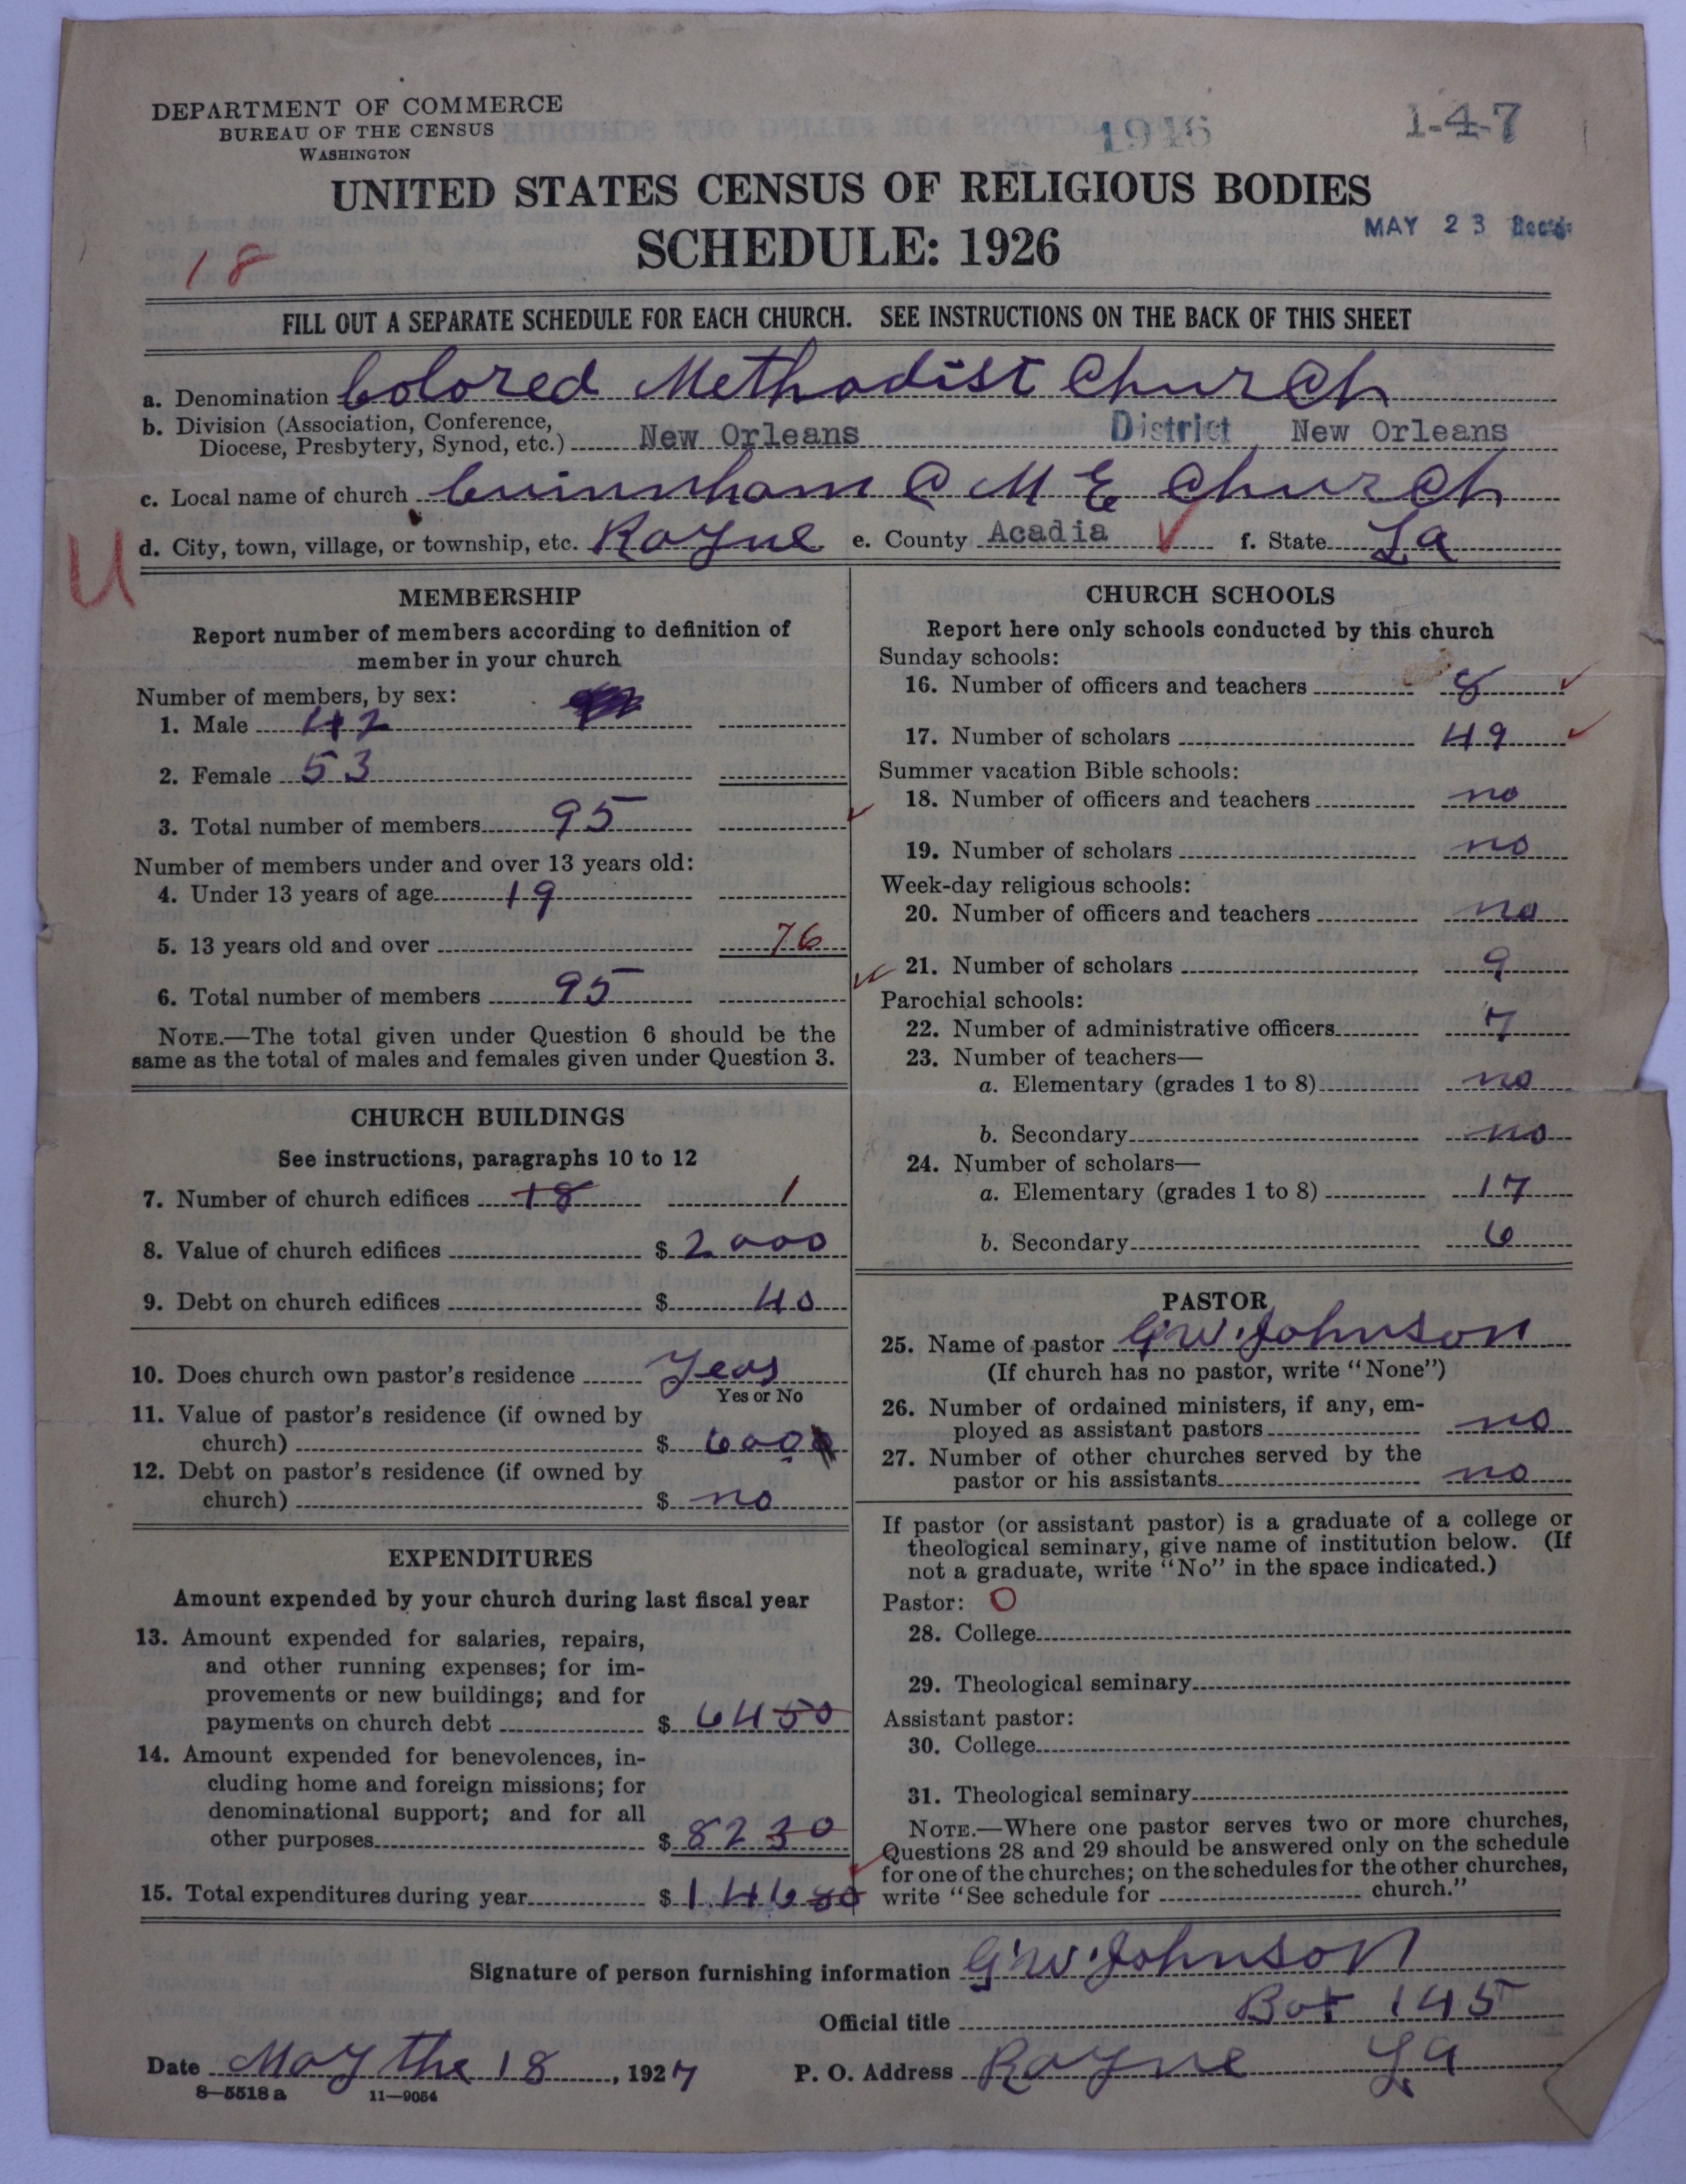 DEPARTMENT OF COMMERCE
BUREAU OF THE CENSUS
WASHINGTON
1946
1-4-7
UNITED STATES CENSUS OF RELIGIOUS BODIES
SCHEDULE: 1926
MAY 23 Rec'd
18
FILL OUT A SEPARATE SCHEDULE FOR EACH CHURCH. SEE INSTRUCTIONS ON THE BACK OF THIS SHEET
a. Denomination Colored Methodist Church
b. Division (Association, Conference,
Diocese, Presbytery, Synod, etc.) New Orleans District New Orleans
c. Local name of church C M E Church
d. City, town, village, or township, etc. Rayne e. County Acadia f. State La
U
MEMBERSHIP
Report number of members according to definition of
member in your church
Number of members, by sex:
1. Male 42
2. Female 53
3. Total number of members 95
Number of members under and over 13 years old:
4. Under 13 years of age 19
5. 13 years old and over 76
6. Total number of members 95
NOTE.—The total given under Question 6 should be the
same as the total of males and females given under Question 3.
CHURCH BUILDINGS
See instructions, paragraphs 10 to 12
7. Number of church edifices 18 1
8. Value of church edifices $ 2000
9. Debt on church edifices $ 40
10. Does church own pastor's residence Yeas
Yes or No
11. Value of pastor's residence (if owned by
church) $ 600
12. Debt on pastor's residence (if owned by
church) $ no
EXPENDITURES
Amount expended by your church during last fiscal year
13. Amount expended for salaries, repairs,
and other running expenses; for im-
provements or new buildings; and for
payments on church debt $ 6450
14. Amount expended for benevolences, in-
cluding home and foreign missions; for
denominational support; and for all
other purposes $ 8230
15. Total expenditures during year $ 14680
CHURCH SCHOOLS
Report here only schools conducted by this church
Sunday schools:
16. Number of officers and teachers 8
17. Number of scholars 49
Summer vacation Bible schools:
18. Number of officers and teachers no
19. Number of scholars no
Week-day religious schools:
20. Number of officers and teachers no
21. Number of scholars 9
Parochial schools:
22. Number of administrative officers 7
23. Number of teachers—
a. Elementary (grades 1 to 8) no
b. Secondary no
24. Number of scholars—
a. Elementary (grades 1 to 8) 17
b. Secondary 6
PASTOR
25. Name of pastor G.W. Johnson
(If church has no pastor, write "None")
26. Number of ordained ministers, if any, em-
ployed as assistant pastors no
27. Number of other churches served by the
pastor or his assistants no
If pastor (or assistant pastor) is a graduate of a college or
theological seminary, give name of institution below. (If
not a graduate, write "No" in the space indicated.)
Pastor: O
28. College
29. Theological seminary
Assistant pastor:
30. College
31. Theological seminary
NOTE.—Where one pastor serves two or more churches,
Questions 28 and 29 should be answered only on the schedule
for one of the churches; on the schedules for the other churches,
write "See schedule for church."
Signature of person furnishing information G.W. Johnson
Official title Box 145
Date May the 18, 1927 P. O. Address Rayne La
8—5518a 11—9054